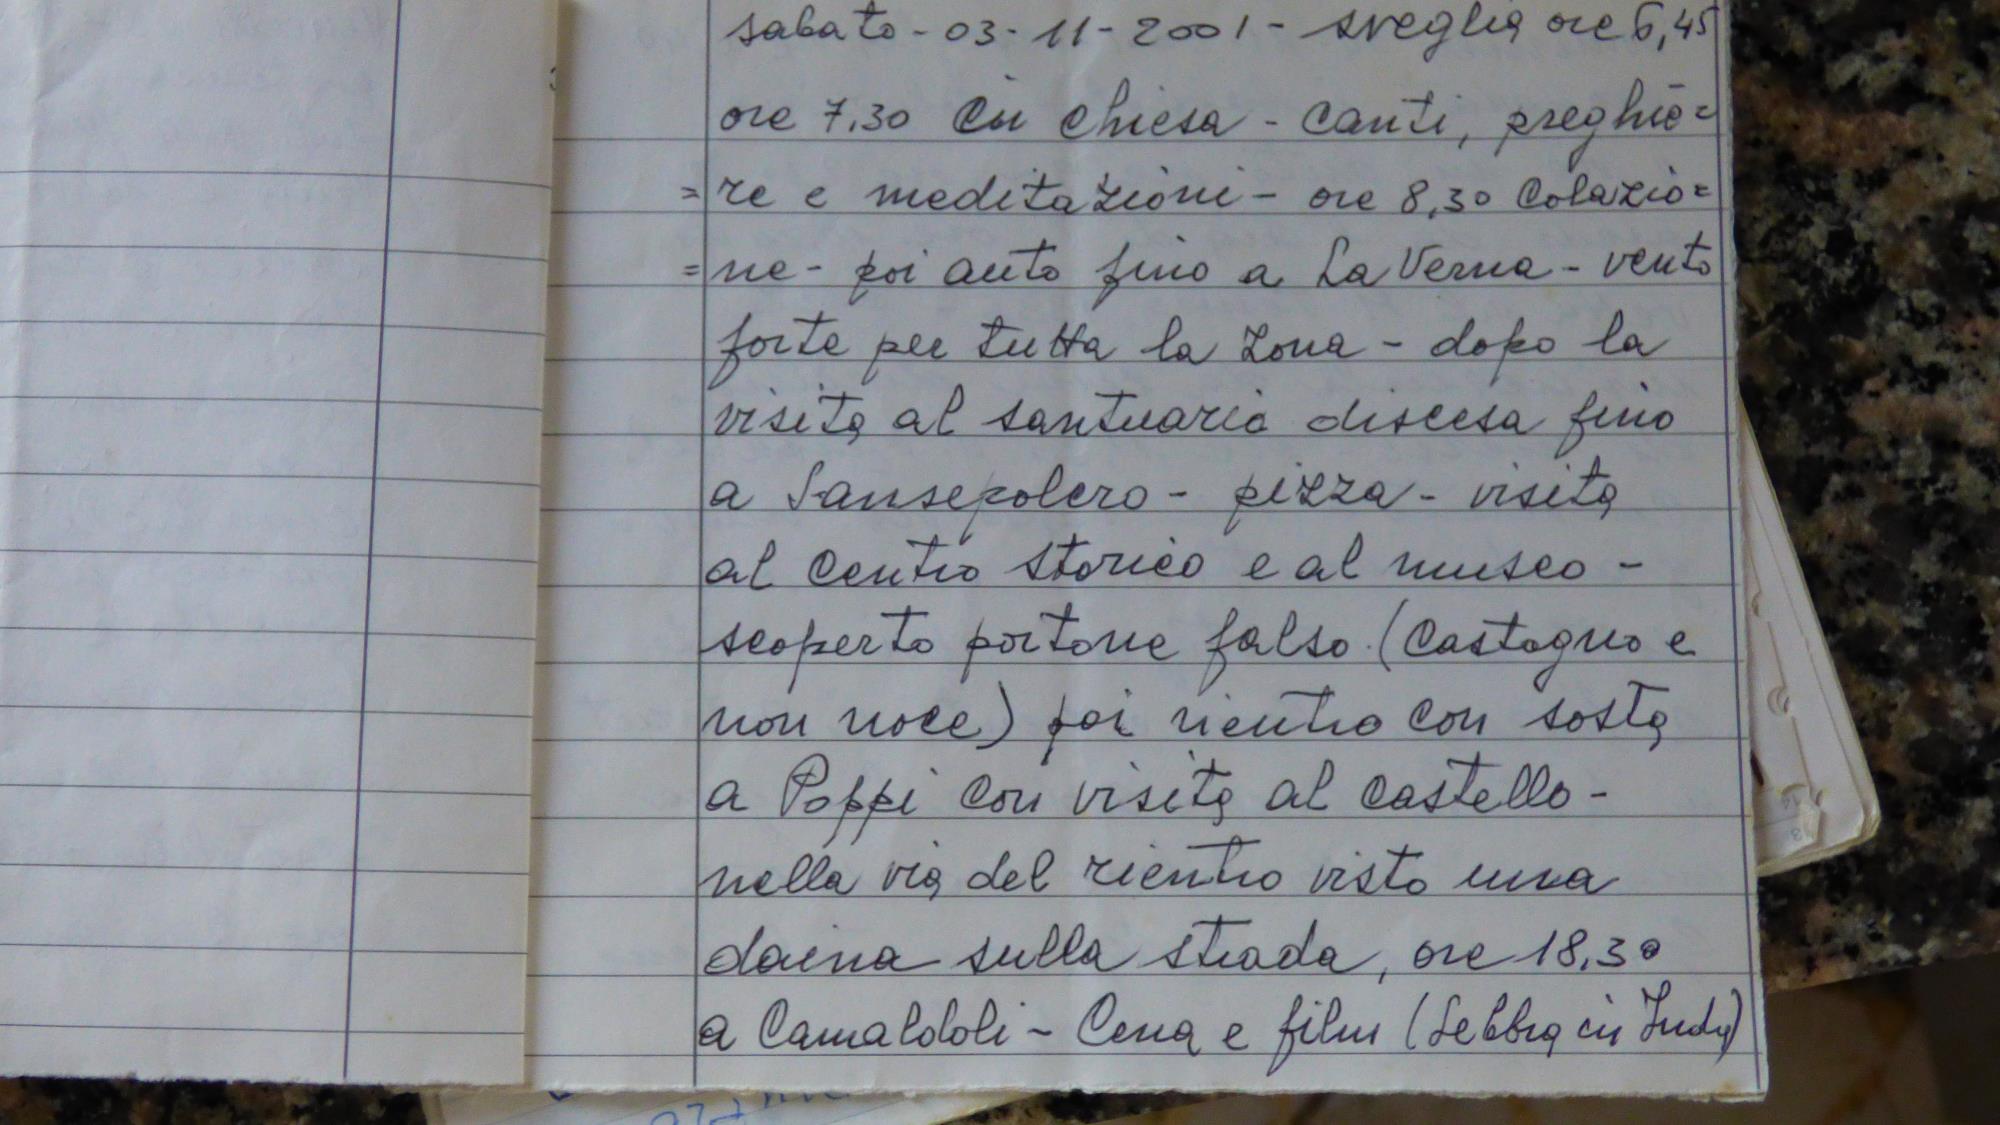 sabato - 03-11-2001 - sveglia ore 6,45
ore 7,30 in chiesa - canti, preghie=
=re e meditazioni - ore 8,30 Colazio=
=ne - poi auto fino a La Verna - vento
forte per tutta la zona - dopo la
visita al santuario discesa fino
a Sansepolcro - pizza - visita
al centro storico e al museo -
scoperto portone falso (castagno e
non noce) poi rientro con sosta
a Poppi con visita al castello -
nella via del rientro visto una
daina sulla strada, ore 18,30
a Camaldoli - Cena e film (Lebbra in